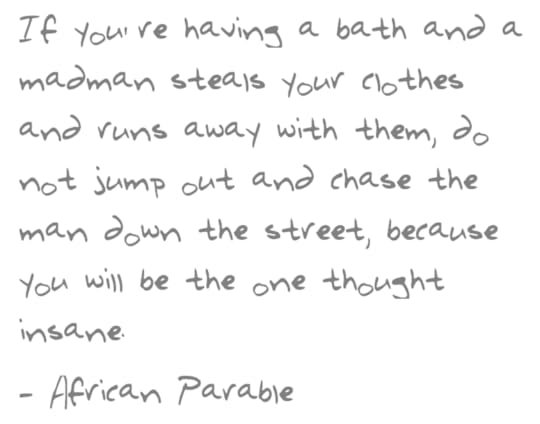 If you're having a bath and a
madman steals your clothes
and runs away with them, do
not jump out and chase the
man down the street, because
you will be the one thought
insane.
- African Parable